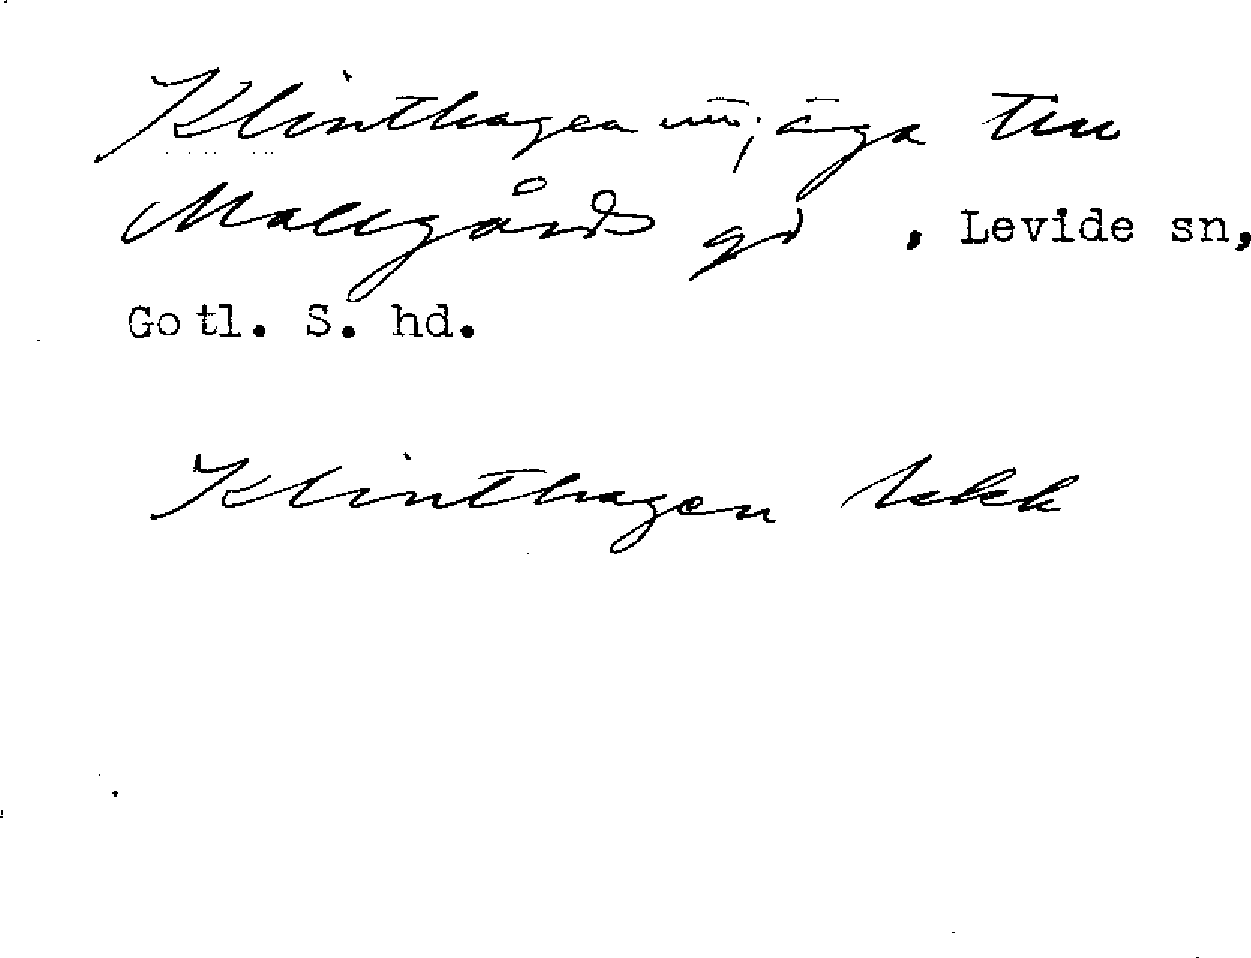 Klinthagen m; äga till
Mallgårds gd , Levide sn,
Gotl. S. hd.
Klinthagen